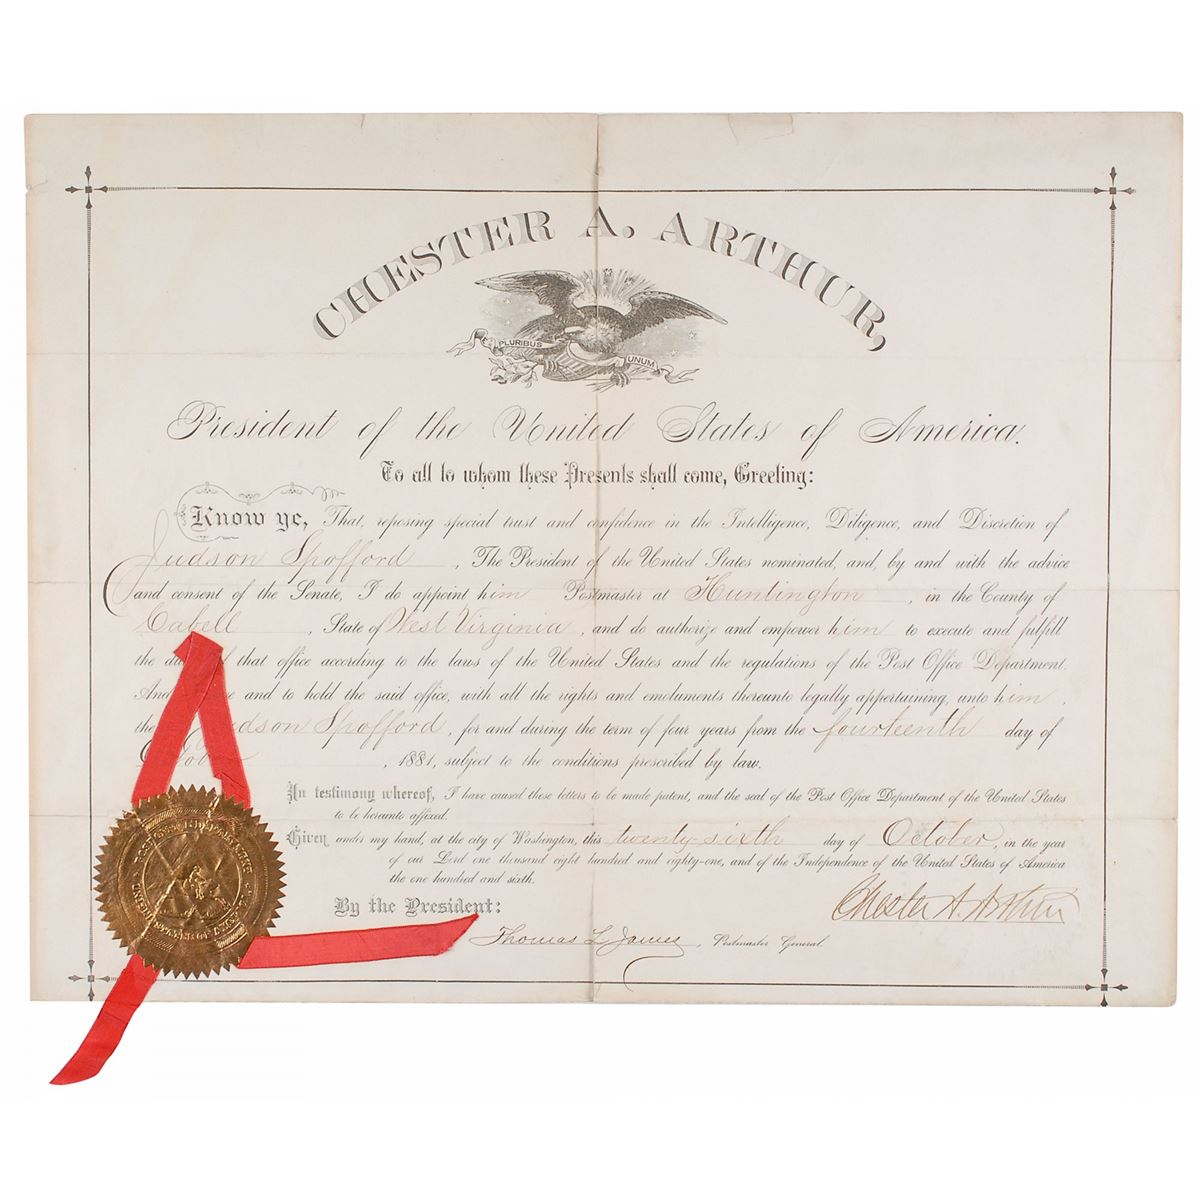 CHESTER A. ARTHUR,
E PLURIBUS UNUM
President of the United States of America.
To all to whom these Presents shall come, Greeting:
Know ye, That, reposing special trust and confidence in the Intelligence, Diligence, and Discretion of
Judson Spofford, The President of the United States nominated, and, by and with the advice
and consent of the Senate, I do appoint him Postmaster at Huntington, in the County of
Cabell, State of West Virginia, and do authorize and empower him to execute and fulfill
the of that office according to the laws of the United States and the regulations of the Post Office Department.
And and to hold the said office, with all the rights and emoluments thereunto legally appertaining, unto him,
the Judson Spofford, for and during the term of four years from the fourteenth day of
, 1881, subject to the conditions prescribed by law.
In testimony whereof, I have caused these letters to be made patent, and the seal of the Post Office Department of the United States
to be hereunto affixed.
Given under my hand, at the city of Washington, this twenty-sixth day of October, in the year
of our Lord one thousand eight hundred and eighty-one, and of the Independence of the United States of America
the one hundred and sixth.
Chester A. Arthur
By the President:
Thomas L. James, Postmaster General.
POST OFFICE DEPARTMENT
UNITED STATES OF AMERICA